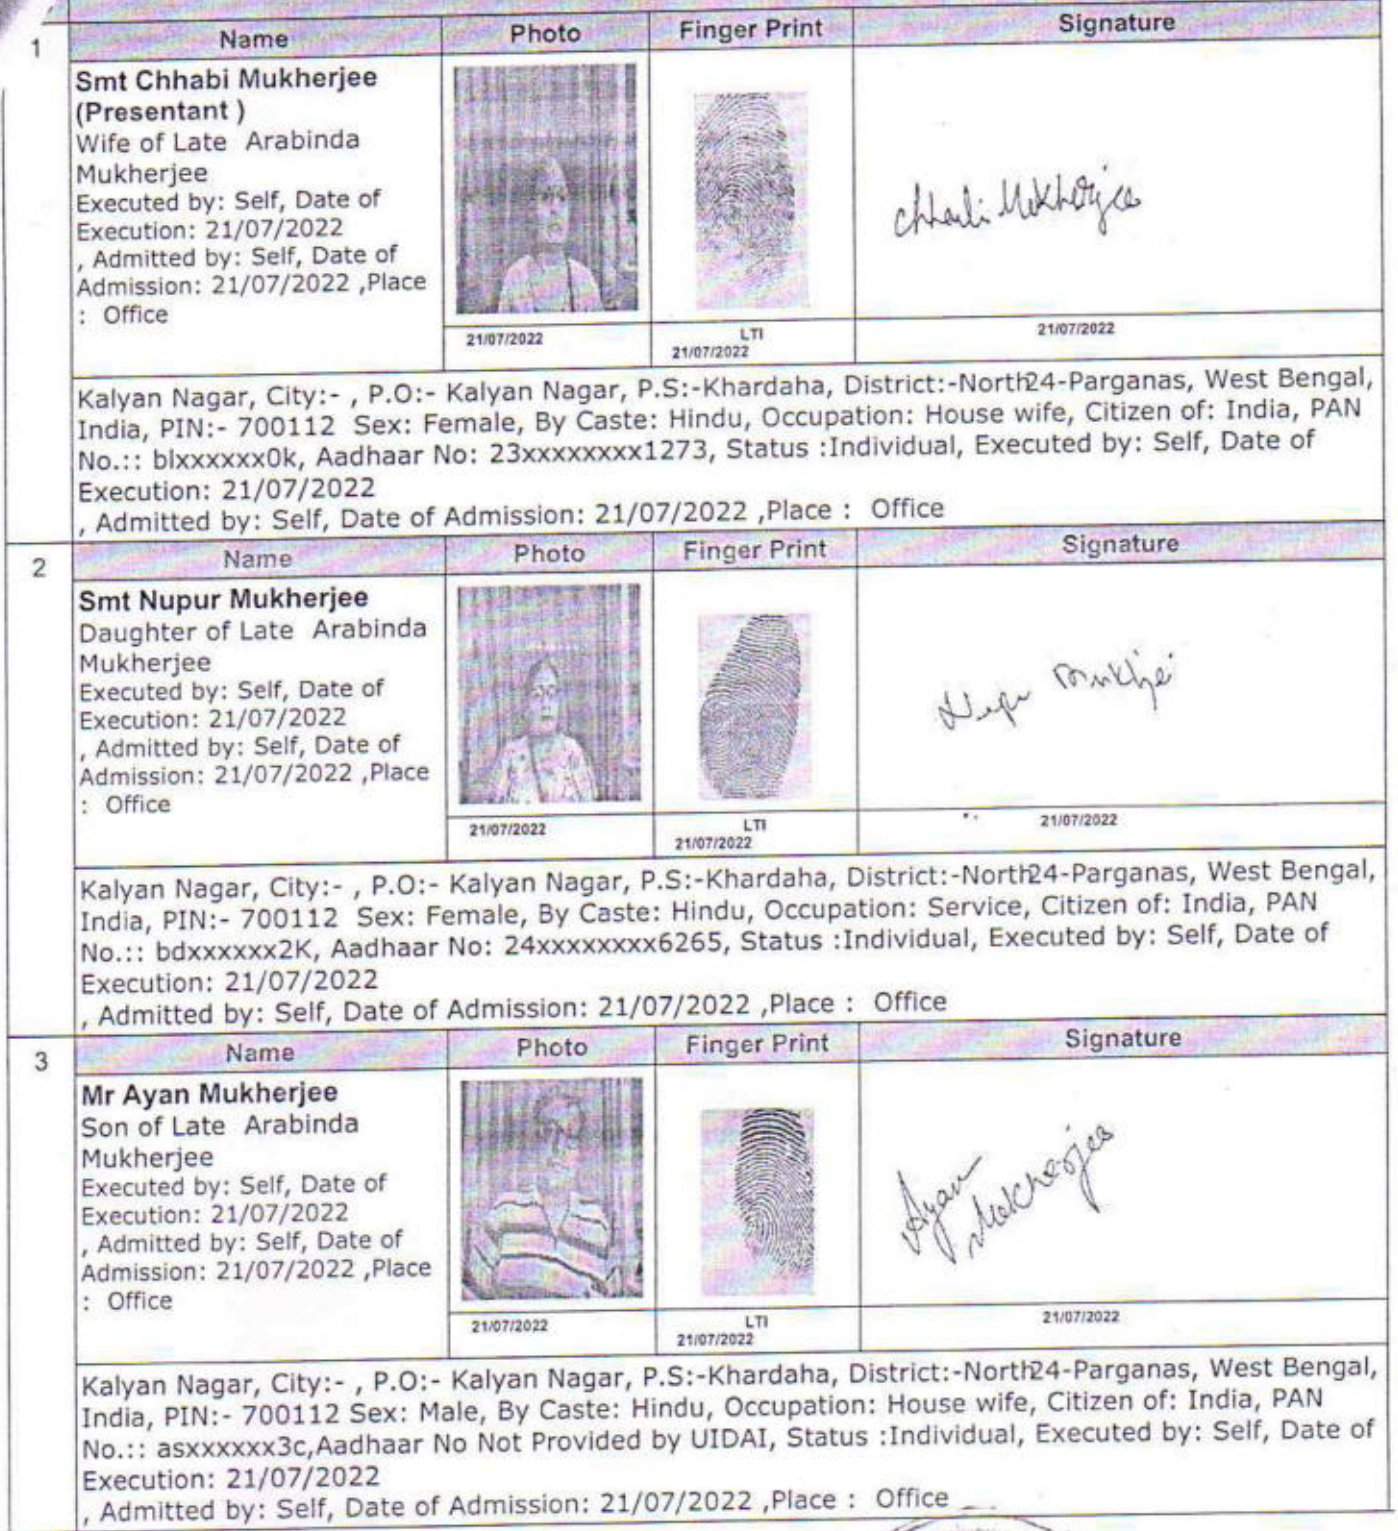 1
Name Photo Finger Print Signature
Smt Chhabi Mukherjee
(Presentant )
Wife of Late Arabinda
Mukherjee
Executed by: Self, Date of
Execution: 21/07/2022
, Admitted by: Self, Date of
Admission: 21/07/2022 ,Place
: Office
Chhabi Mukherjee
21/07/2022
LTI
21/07/2022
21/07/2022
Kalyan Nagar, City:- , P.O:- Kalyan Nagar, P.S:-Khardaha, District:-North24-Parganas, West Bengal,
India, PIN:- 700112 Sex: Female, By Caste: Hindu, Occupation: House wife, Citizen of: India, PAN
No.:: blxxxxxx0k, Aadhaar No: 23xxxxxxxx1273, Status :Individual, Executed by: Self, Date of
Execution: 21/07/2022
, Admitted by: Self, Date of Admission: 21/07/2022 ,Place : Office
2
Name Photo Finger Print Signature
Smt Nupur Mukherjee
Daughter of Late Arabinda
Mukherjee
Executed by: Self, Date of
Execution: 21/07/2022
, Admitted by: Self, Date of
Admission: 21/07/2022 ,Place
: Office
21/07/2022
LTI
21/07/2022
21/07/2022
Kalyan Nagar, City:- , P.O:- Kalyan Nagar, P.S:-Khardaha, District:-North24-Parganas, West Bengal,
India, PIN:- 700112 Sex: Female, By Caste: Hindu, Occupation: Service, Citizen of: India, PAN
No.:: bdxxxxxx2K, Aadhaar No: 24xxxxxxxx6265, Status :Individual, Executed by: Self, Date of
Execution: 21/07/2022
, Admitted by: Self, Date of Admission: 21/07/2022 ,Place : Office
3
Name Photo Finger Print Signature
Mr Ayan Mukherjee
Son of Late Arabinda
Mukherjee
Executed by: Self, Date of
Execution: 21/07/2022
, Admitted by: Self, Date of
Admission: 21/07/2022 ,Place
: Office
Ayan
Mukherjee
21/07/2022
LTI
21/07/2022
21/07/2022
Kalyan Nagar, City:- , P.O:- Kalyan Nagar, P.S:-Khardaha, District:-North24-Parganas, West Bengal,
India, PIN:- 700112 Sex: Male, By Caste: Hindu, Occupation: House wife, Citizen of: India, PAN
No.:: asxxxxxx3c,Aadhaar No Not Provided by UIDAI, Status :Individual, Executed by: Self, Date of
Execution: 21/07/2022
, Admitted by: Self, Date of Admission: 21/07/2022 ,Place : Office